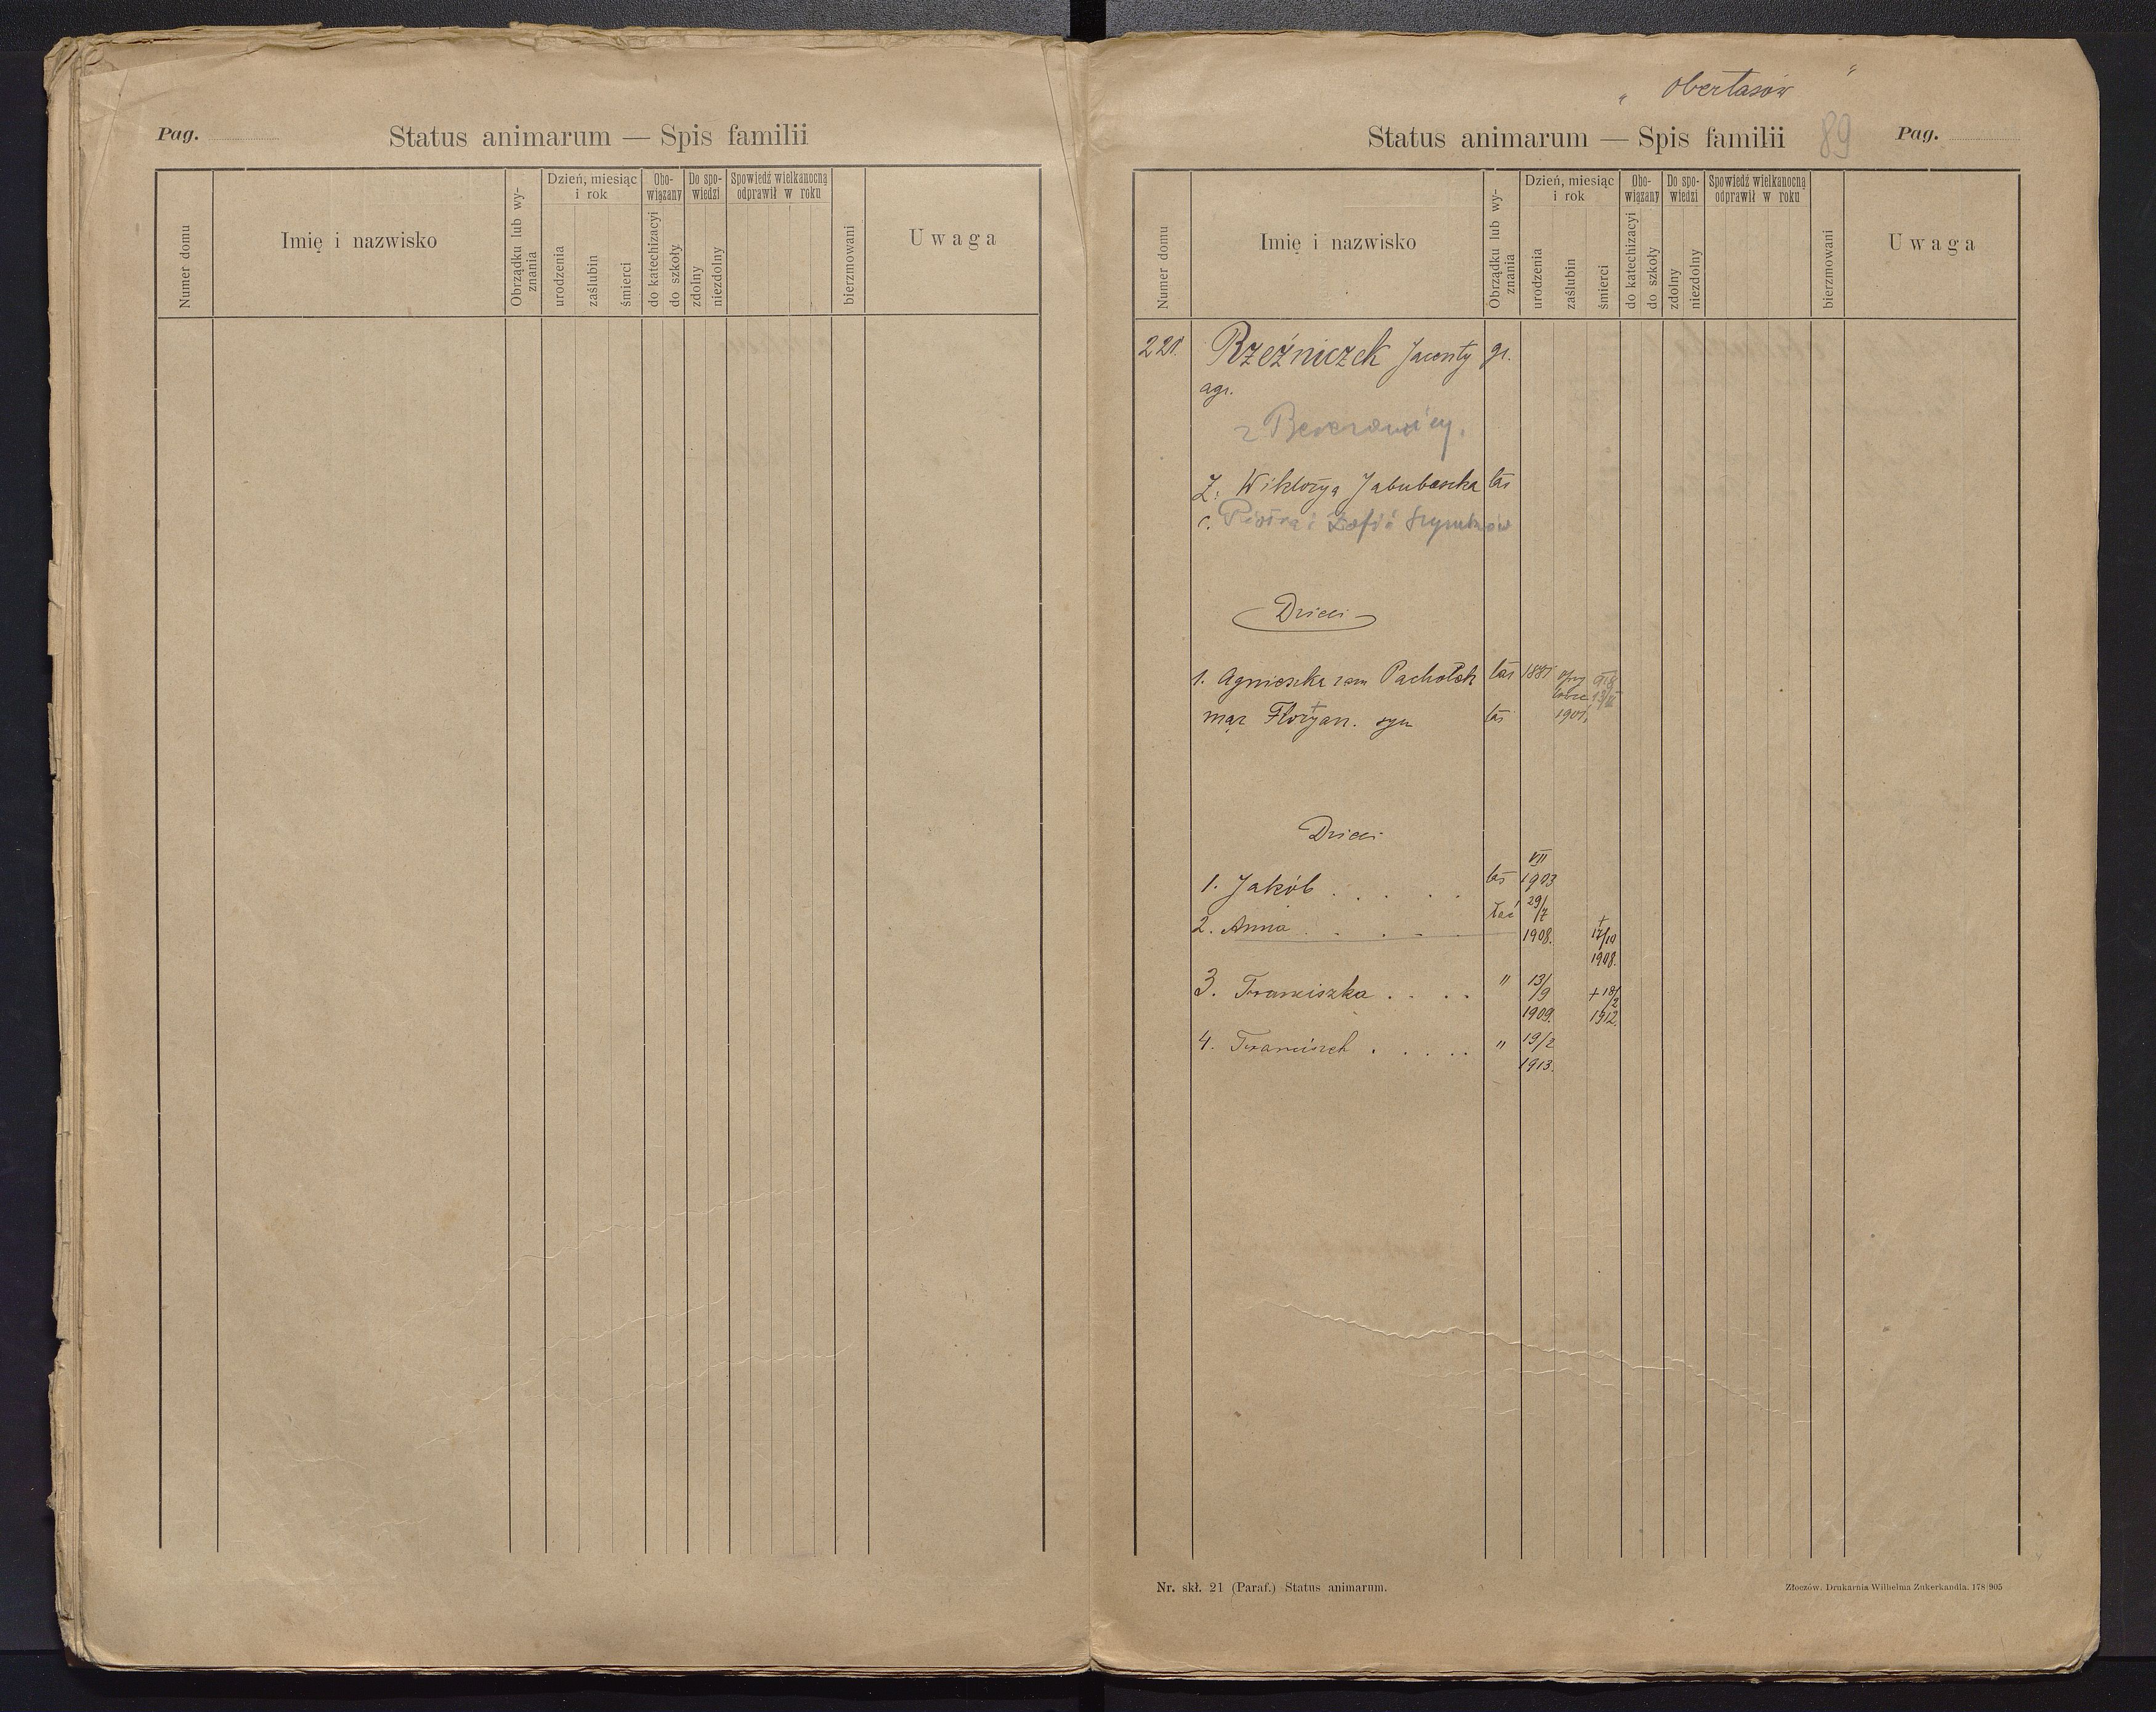 Pag.
Status animarum — Spis familii
Numer domu
Imię i nazwisko
Obrządku lub wy-
znania
Dzień, miesiąc
i rok
urodzenia
zaślubin
śmierci
Obo-
wiązany
do katechizacyi
do szkoły
Do spo-
wiedzi
zdolny
niezdolny
Spowiedź wielkanocną
odprawił w roku
bierzmowani
Uwaga
„ Obertasów "
Status animarum — Spis familii
89
Pag.
Numer domu
Imię i nazwisko
Obrządku lub wy-
znania
Dzień, miesiąc
i rok
urodzenia
zaślubin
śmierci
Obo-
wiązany
do katechizacyi
do szkoły
Do spo-
wiedzi
zdolny
niezdolny
Spowiedź wielkanocną
odprawił w roku
bierzmowani
Uwaga
221. Rzeźniczek Jacenty gr.
agr.
Ż: Wiktorya łac
c. Piotra i Zofii
Dzieci
1. Agnieszka zam Pachołek łac 1881
mąż Floryan. syn łac 1901.
Dzieci
VII
1. Jakób . . . . łac 1903
29/7
2. Anna . . . . łać 1908. † 17/10
1908.
3. Franciszka . . . . " 13/9 + 18/2
1909. 1912.
4. Franciszek . . . . . " 19/2
1913.
Nr. skł. 21 (Paraf.) Status animarum.
Złoczów. Drukarnia Wilhelma Zukerkandla. 178|905